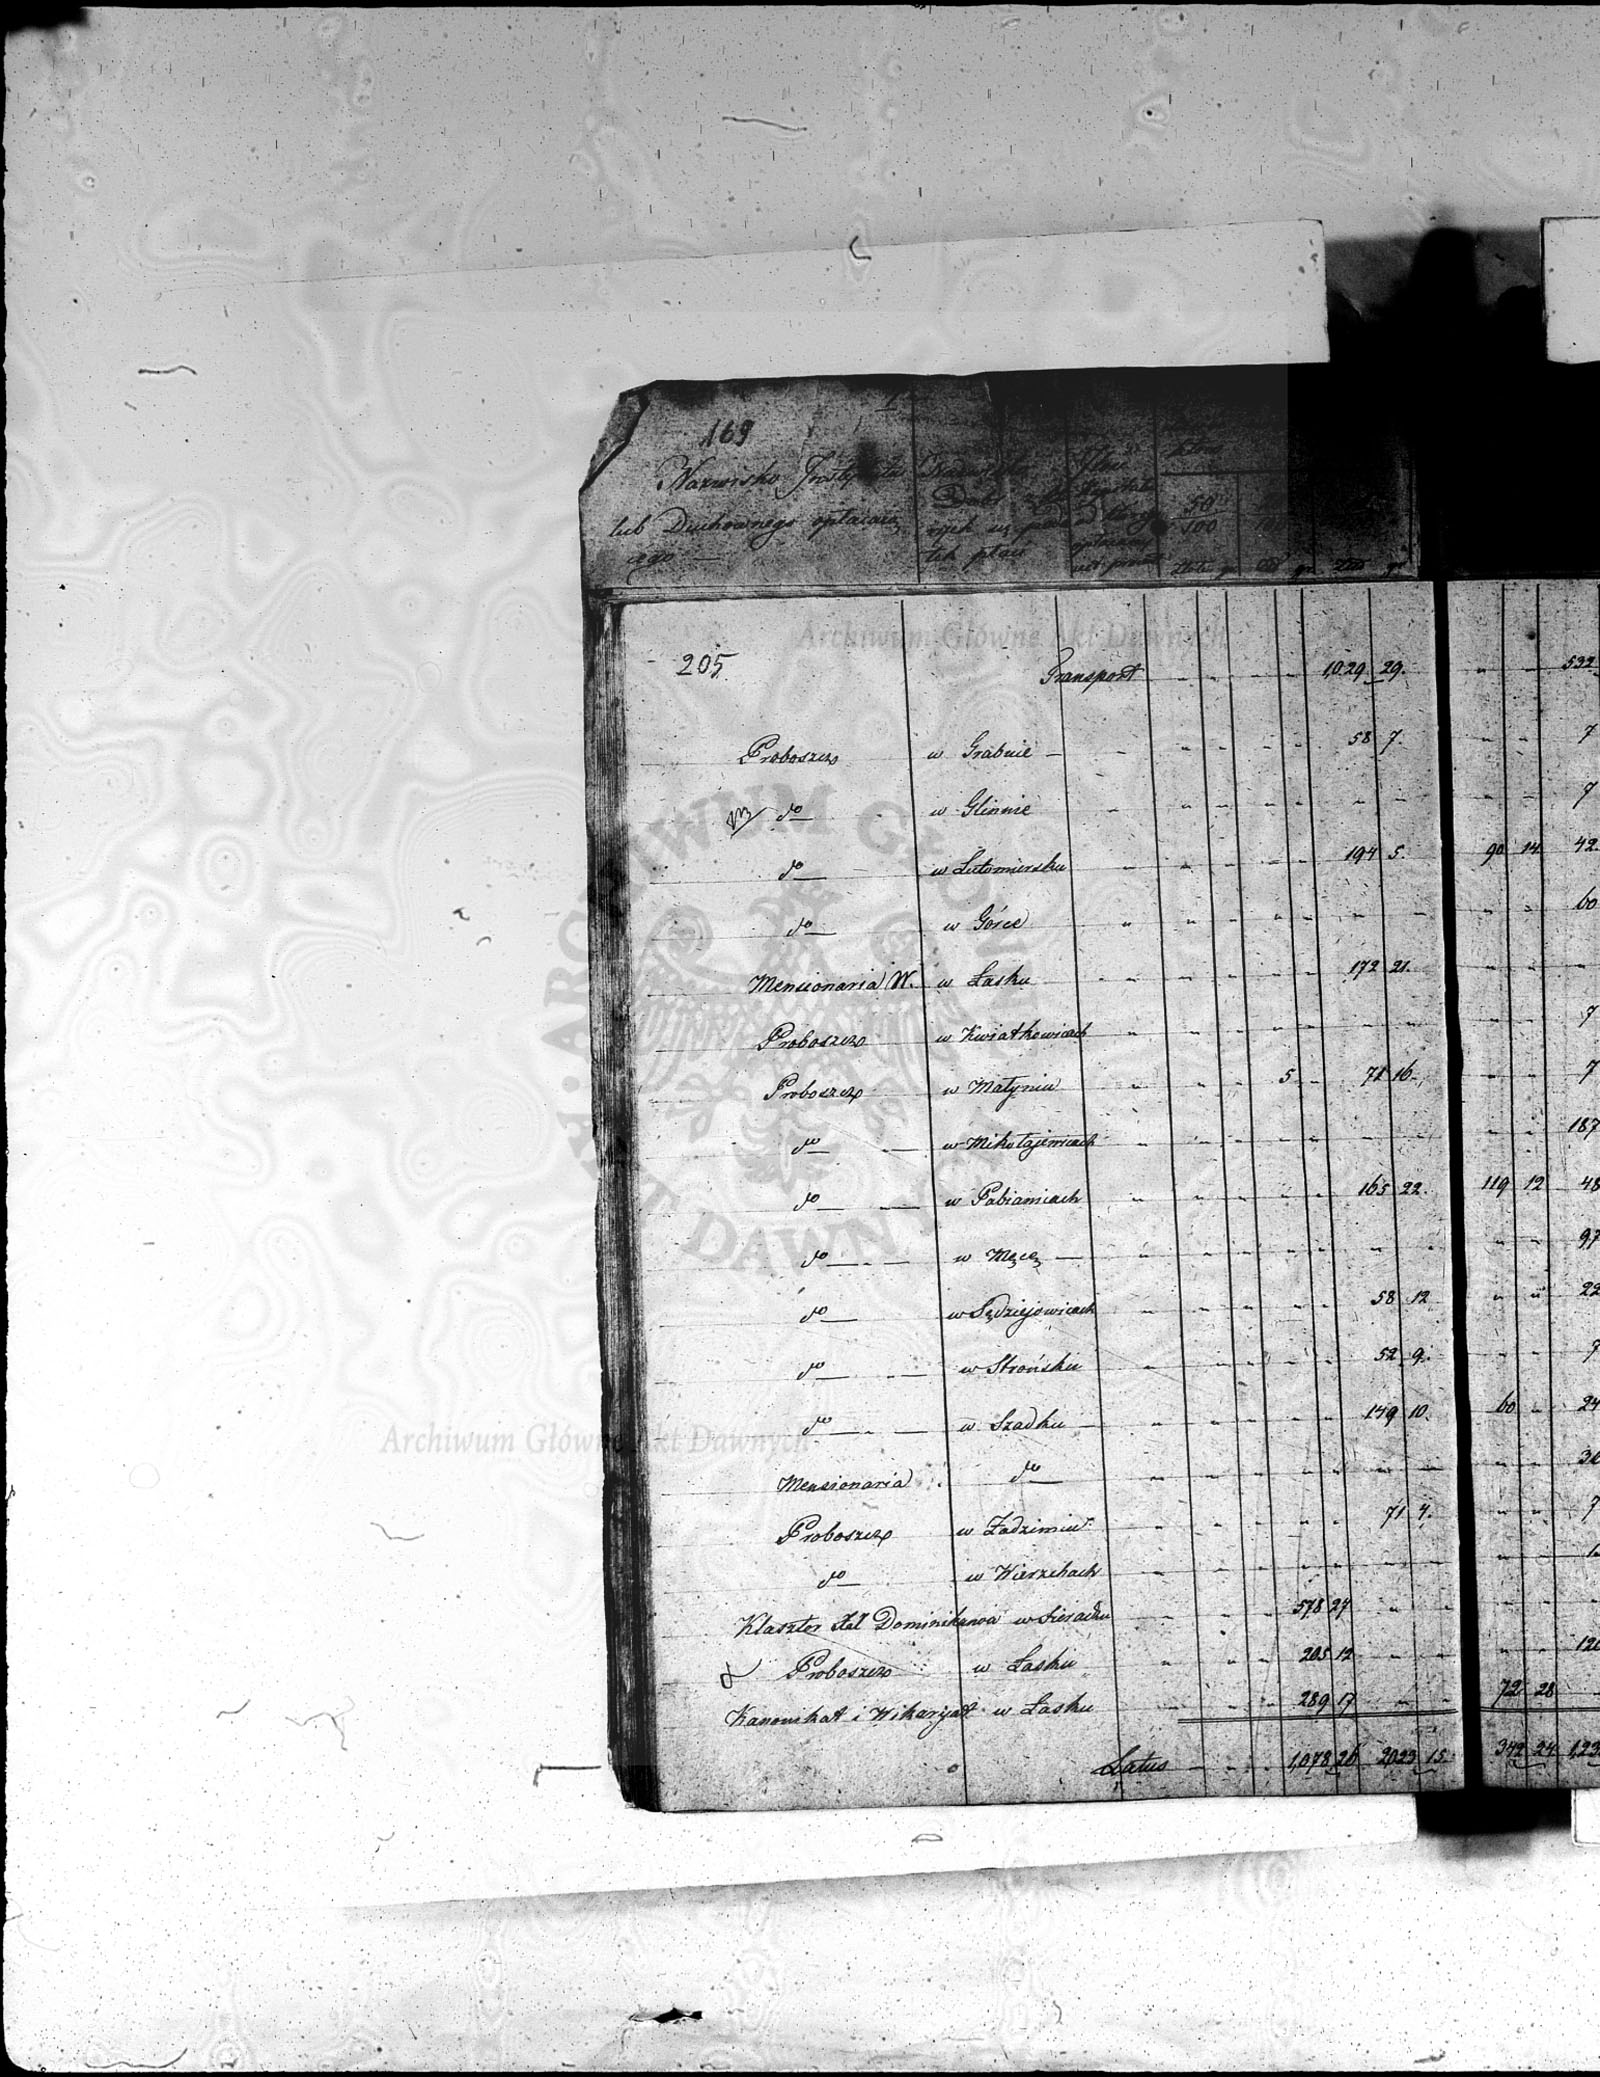 169
Nazwisko Instytutu
lub Duchownego opłacają
cego —
Nazwisko
Dóbr z któ
rych się podo
tek płaci
50
100
Złote gr. Złte gr. Złte gr.
Archiwum Główne Akt Dawnych
205. Transport " " " " 1,029 29. " " 532
Proboszcz w Grabnie — " " " " " " 58 7. " " 7
do w Glinnie " " " " " " " " " " 7
do w Lutomiersku " " " " " " 194 5. 90 14 42.
do w Górce " " " " " " " " " " 60
Mensionaria W. w Łasku " " " " " " 172 21. " " "
Proboszcz w Kwiatkowicach " " " " " " " " " " 7
Proboszcz w Małyniu " " " " 5 " 71 16. " " 7
do w Mikołajewicach " " " " " " " " " " 187
do w Pabianicach " " " " " " 165 22. 119 12 48
do w Męcę — " " " " " " " " " " 97
do w Sędziejowicach " " " " " " 58 12 " " 22
do w Strońsku " " " " " " 52 9. " " 7
do w Szadku " " " " " " 149 10. 60 " 24
Mensionaria do " " " " " " " " " "
Proboszcz w Zadzimiu " " " " " " 71 4. " " 7
do w Wierzchach " " " " " " " " " "
Klasztor XX Dominikanów w Sieradzu " " " " 578 27 " " " " "
Proboszcz w Łasku " " " " 205 12 " " " "
Kanonikat i Wikaryat w Łasku " " " 289 17 " " 72 28 "
Latus " " " " 1,078 26 2023 15. 342 24 1,23
ARCHIWUM GŁÓWNE AKT DAWNYCH
Archiwum Główne Akt Dawnych